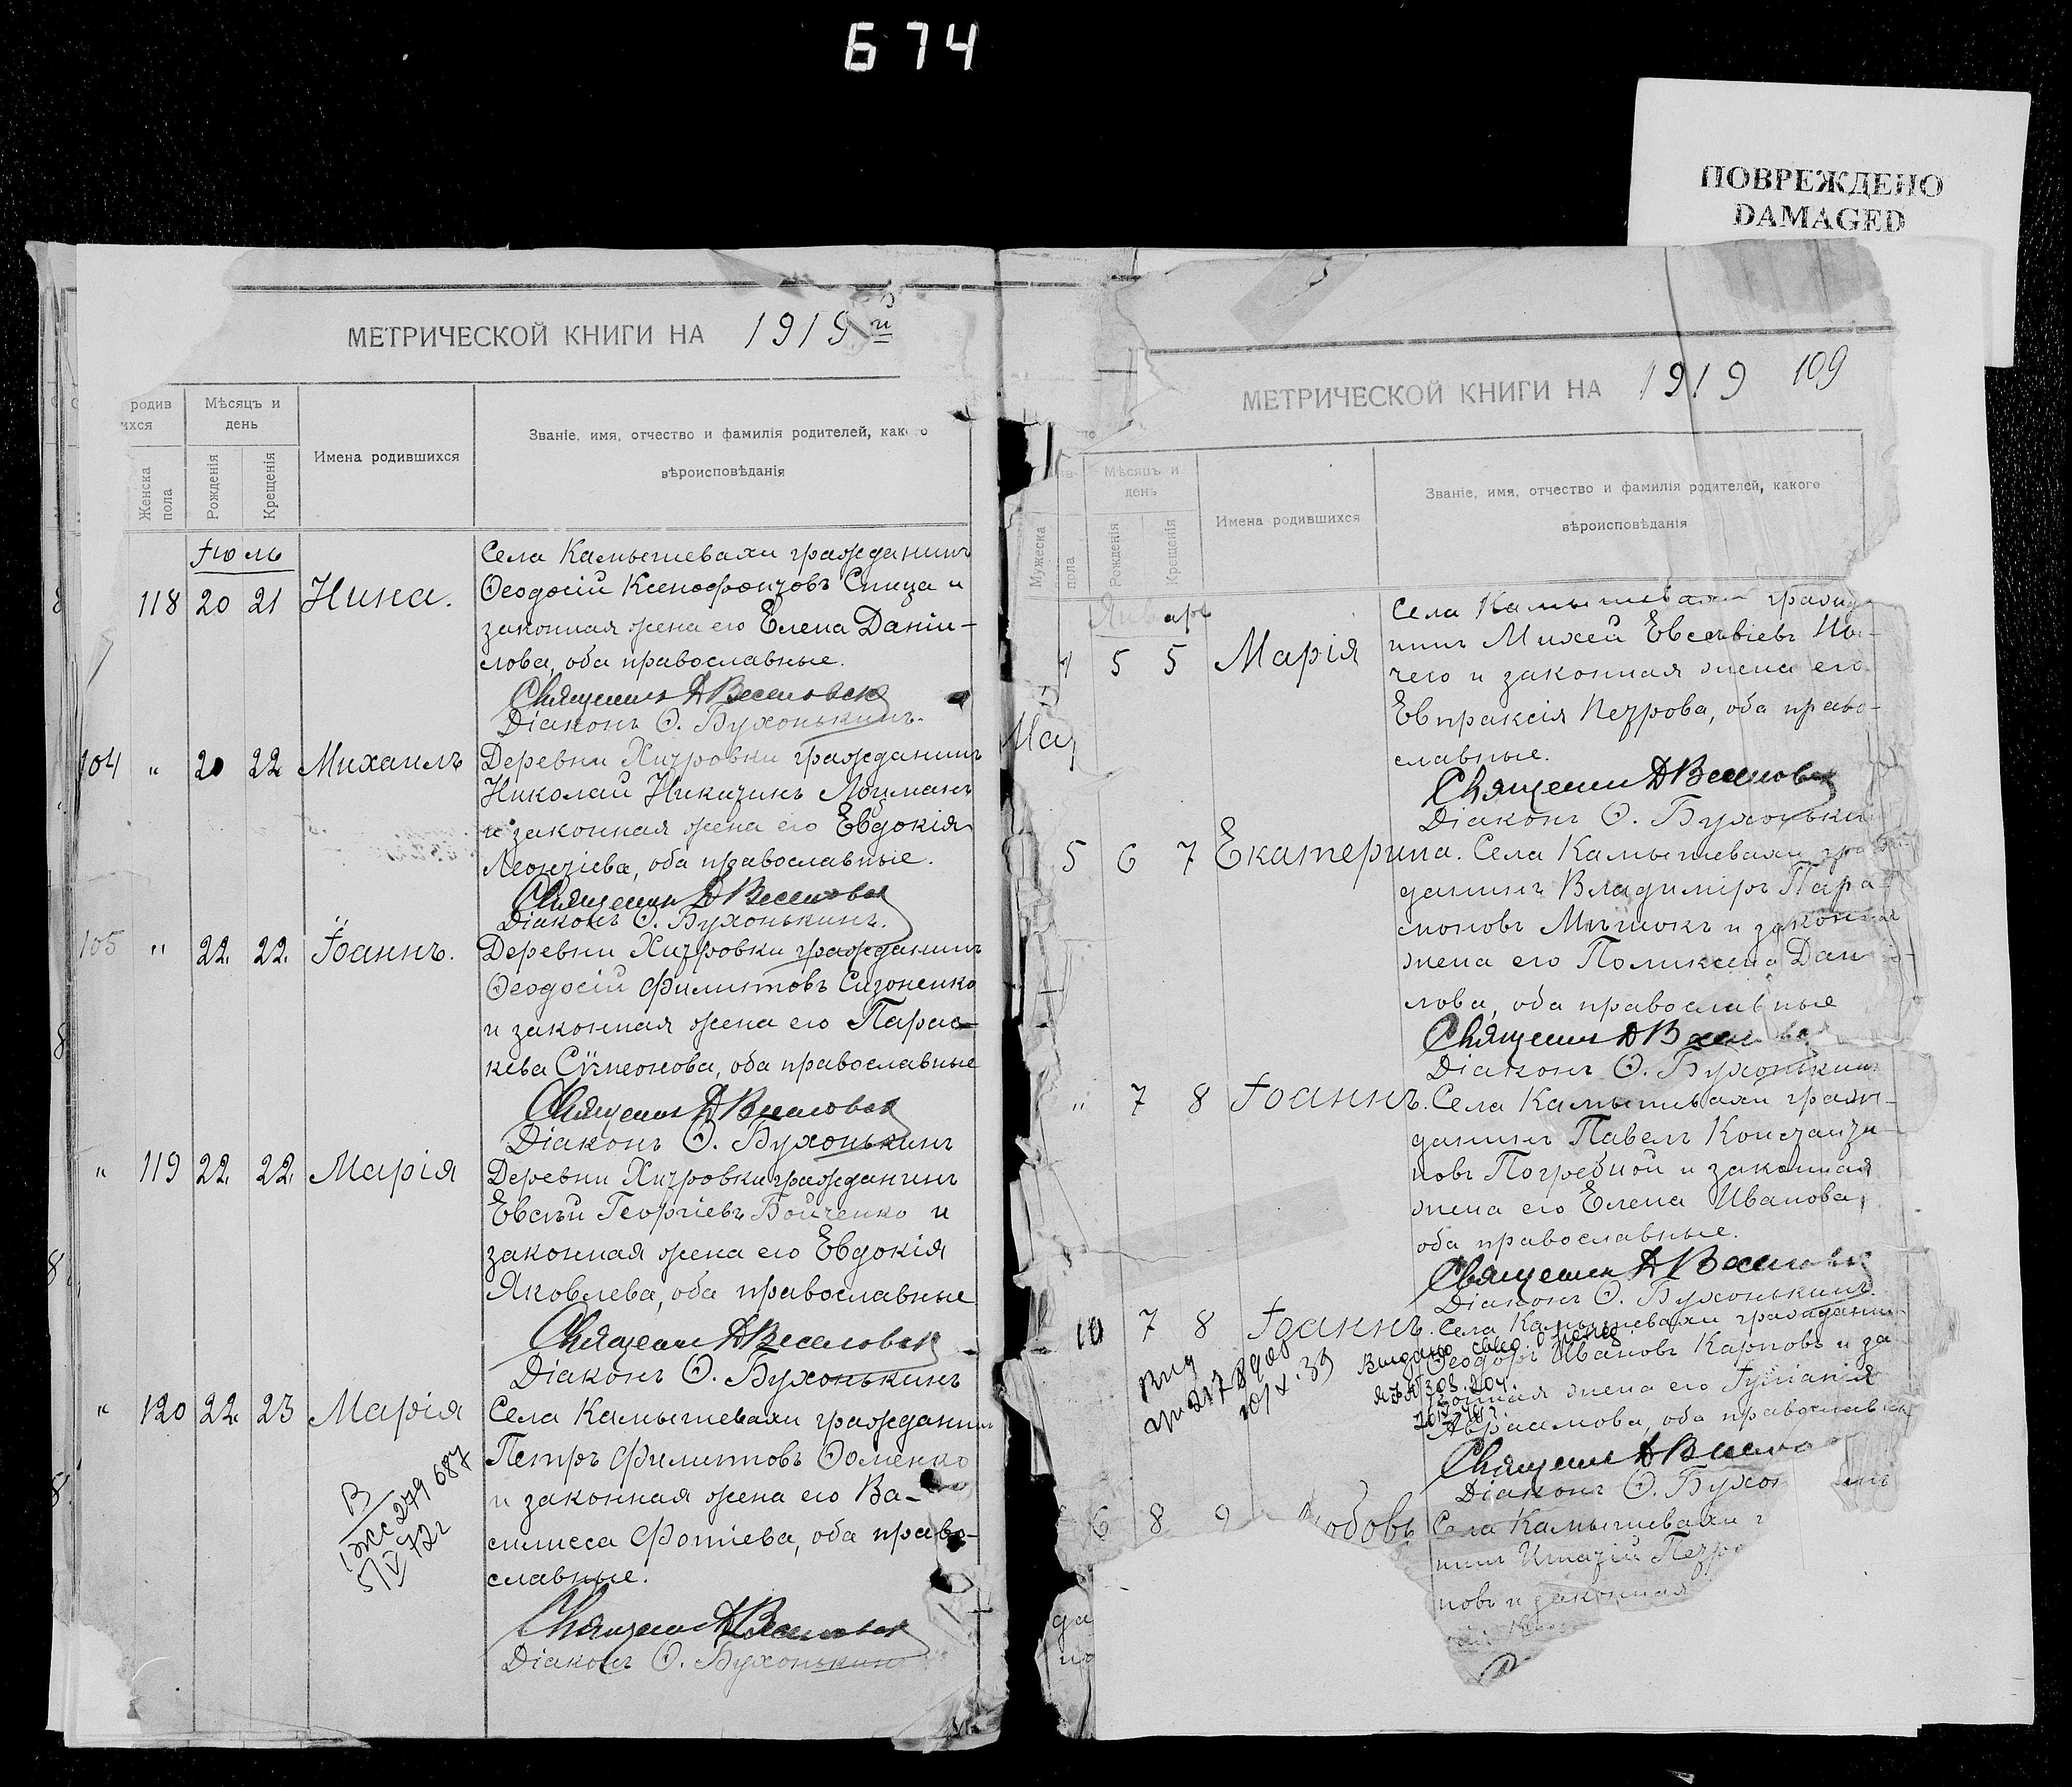 674
ПОВРЕЖДЕНО
DAMAGED
МЕТРИЧЕСКОЙ КНИГИ НА 1919 й
родив
ихся
Мѣсяцъ и
день
Имена родившихся
Званіе, имя, отчество и фамилія родителей, какого
вѣроисповѣданія
Женска
пола
Рожденія
Крещенія
Іюль
Села Камышевахи гражданинъ
118 20 21 Нина. Ѳеодосій Ксенофонтовъ Спица и
законная жена его Елена Даніи-
лова, оба православные.
Священникъ Д Веселовск
Діаконъ Ѳ. Бухонькинъ.
104 " 20 22 Михаилъ Деревни Хитровки гражданинъ
Николай Никитинъ Лоцманъ
и законная жена его Евдокія
Леонтіева, оба православные.
Священникъ Д Веселовск
Діаконъ Ѳ. Бухонькинъ.
105 " 22. 22. Іоаннъ. Деревни Хитровки гражданинъ
Ѳеодосій Филиповъ Сизоненко
и законная жена его Парас-
кева Сѵмеонова, оба православные
Священникъ Д Веселовск
Діаконъ Ѳ. Бухонькинъ
" 119 22. 22. Марія Деревни Хитровки гражданинъ
Евсѣй Георгіевъ Бойченко и
законная жена его Евдокія
Яковлева, оба православные
Священникъ Д Веселовск
Діаконъ Ѳ. Бухонькинъ
" 120 22. 23 Марія Села Камышевахи гражданинъ
Петръ Филиповъ Ѳоменко
и законная жена его Ва-
силисса Фотіева, оба право-
славные.
В
ЖС 279687
5/V 72г
Священникъ Д Веселовск
Діаконъ Ѳ. Бухонькин
МЕТРИЧЕСКОЙ КНИГИ НА 1919 109
Мѣсяцъ и
день
Имена родившихся
Званіе, имя, отчество и фамилія родителей, какого
вѣроисповѣданія
Мужеска
пола
Рожденія
Крещенія
Январь
Села Камышевахи гражда
5 5 Марія нинъ Михей Евсевіевъ
чего и законная жена его
Евпраксія Петрова, оба право-
славные.
Священник Д Веселовск
Діаконъ Ѳ. Бухонькин
5 6 7 Екатерина. Села Камышевахи граж
данинъ Владиміръ Пара-
моновъ Мѣшокъ и законная
жена его Поликсена Дани-
лова, оба православные
Священник Д Весел
Діаконъ Ѳ. Бухонькин
" 7 8 Іоаннъ. Села Камышевахи граж-
данинъ Павелъ Константи-
новъ Погребной и законная
жена его Елена Иванова,
оба православные.
Священник Д Веселовск
Діаконъ Ѳ. Бухонькинъ.
10 7 8 Іоаннъ. Села Камышевахи гражданинъ
Ѳеодоръ Ивановъ Карповъ и за
конная жена его Іуліанія
Авраамова, оба православн
Выдано
Священник Д Весело
Діаконъ Ѳ. Бухон
6 8 9 Любовь Села Камышевахи г
нинъ Игнатій Петро
новъ и законная